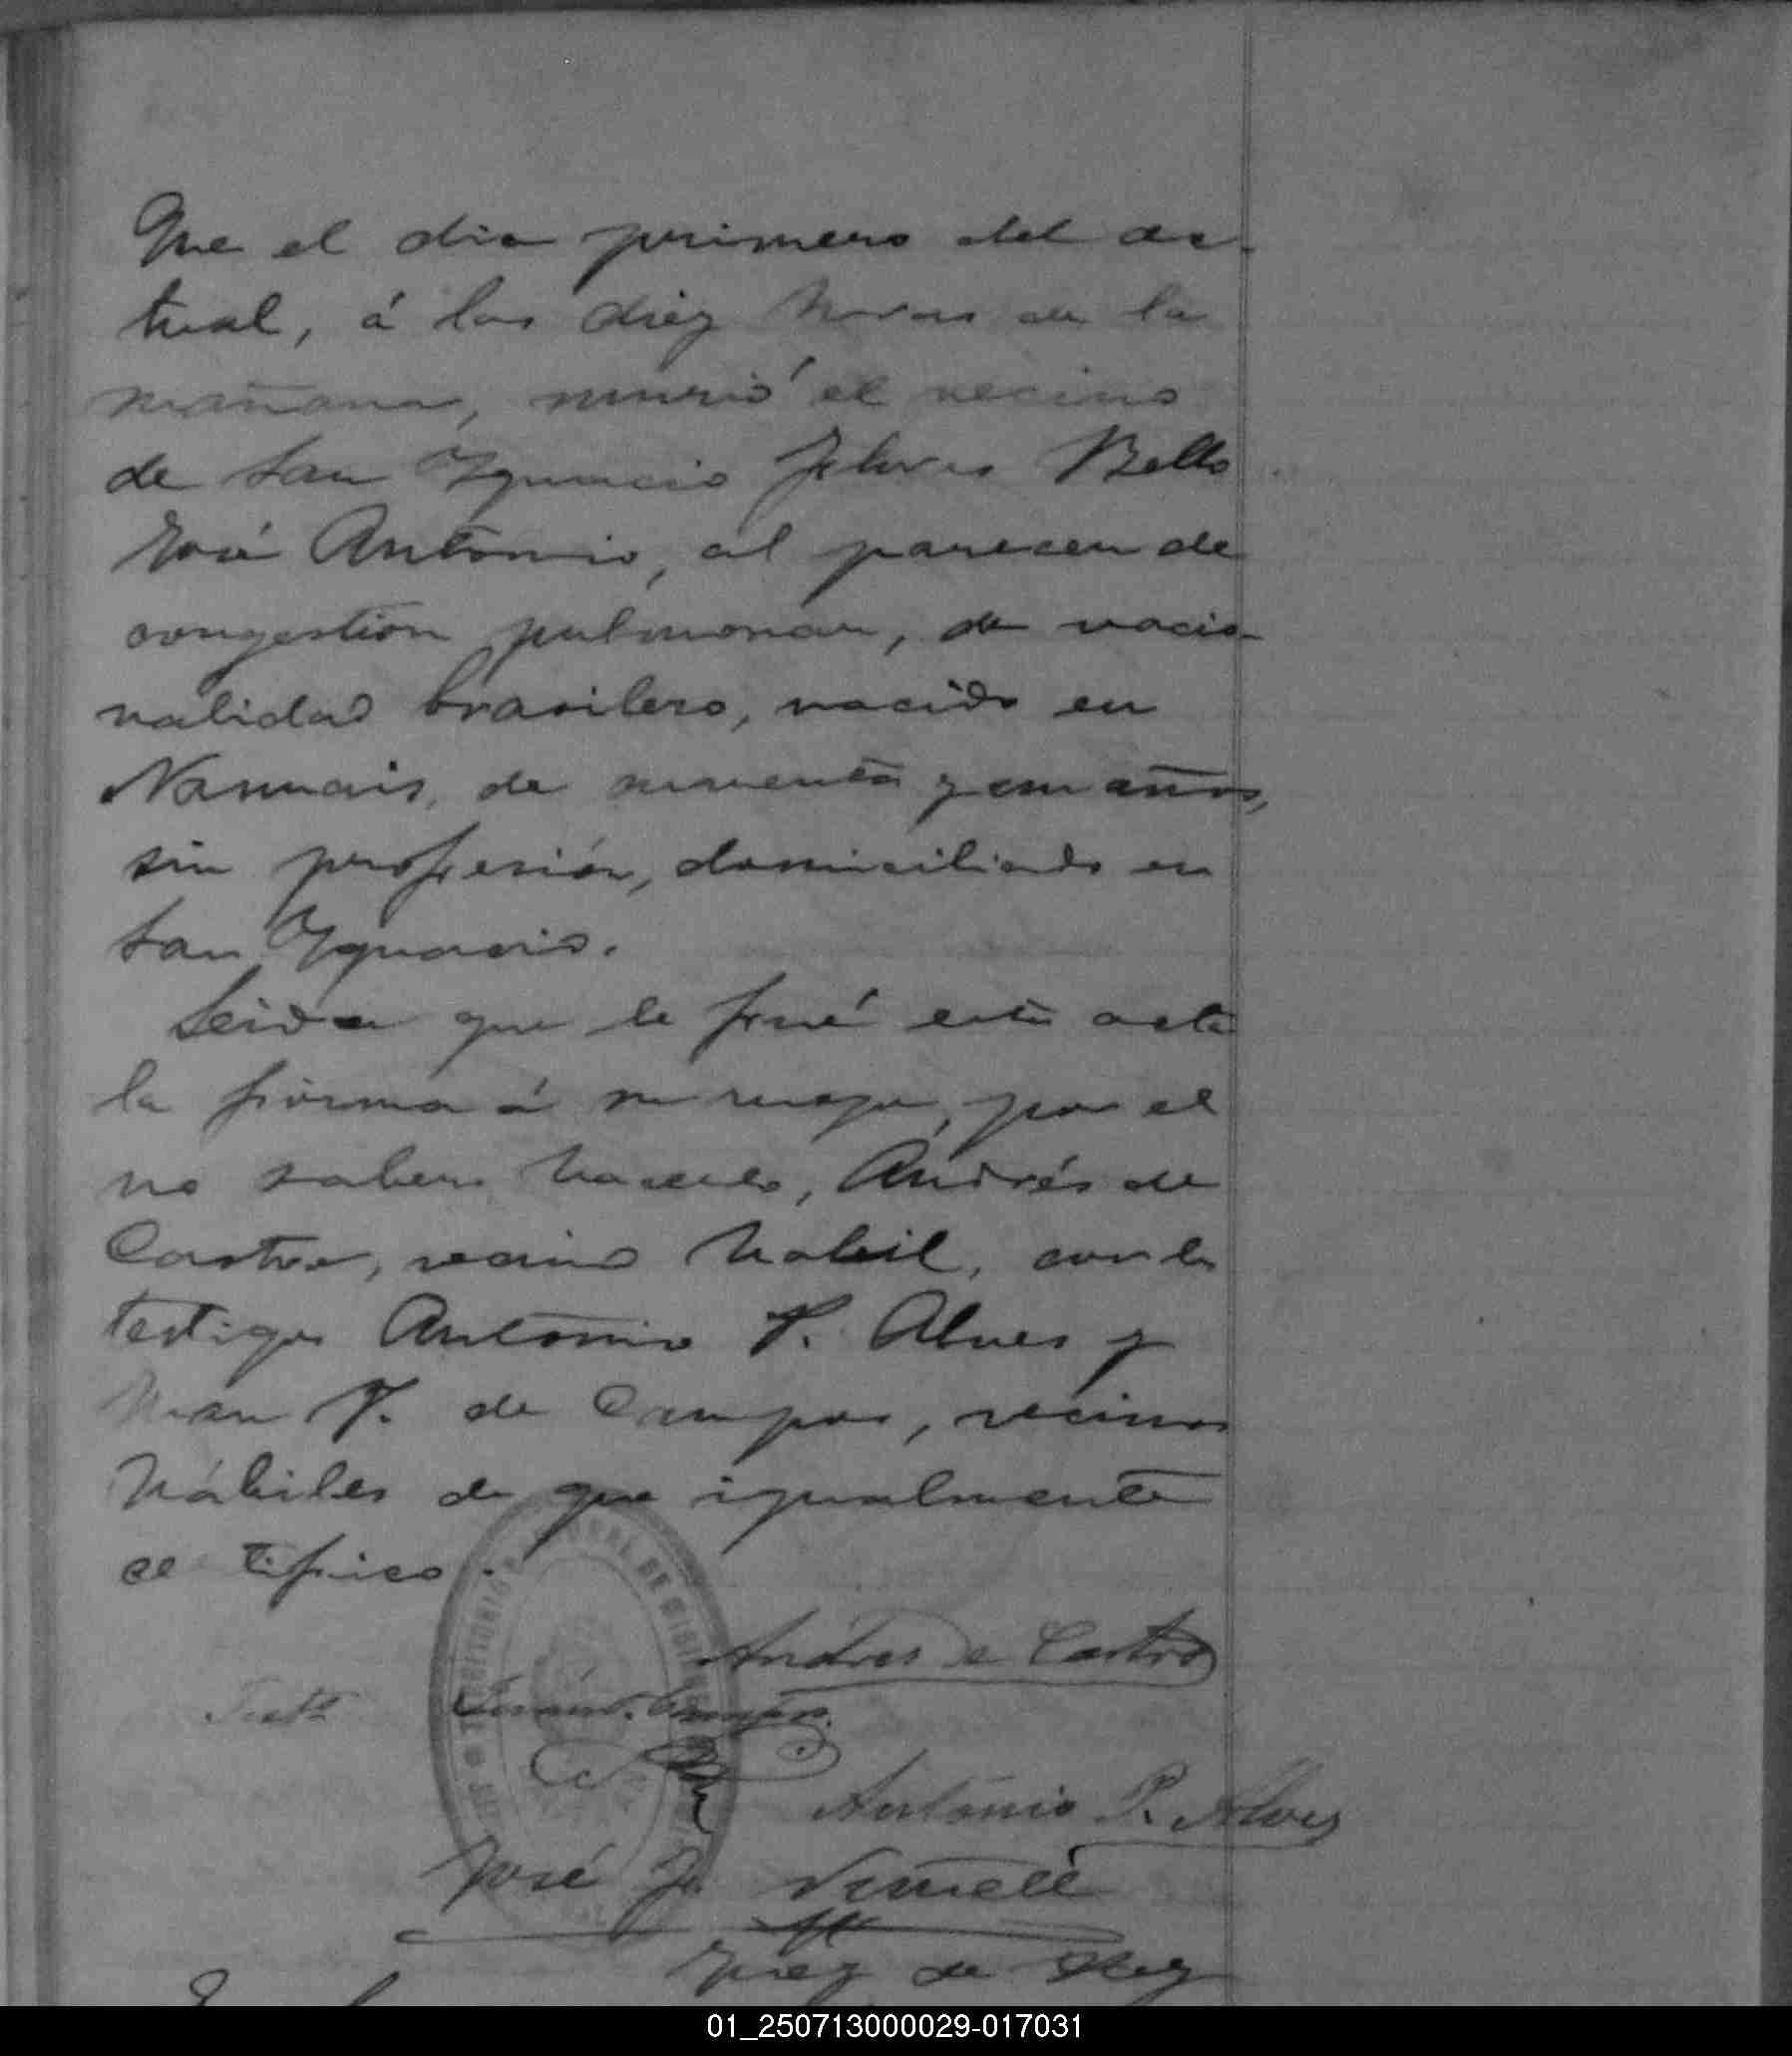 Que el dia primero del ac-
tual, á las diez horas de la
mañana, murió el vecino
de San Ygnacio Bello
José Antonio, al parecer de
congestión pulmonar, de nacio-
nalidad brasilero, nacido en
de y un años,
sin profesión, domiciliado en
San Ygnacio.
Leida que le fué esta acta
la firma á su ruego, por el
no saber hacerlo, Andrés de
Castro, vecino habil, con los
testigos Antonio P. Alves y
Juan F. de Campos, vecinos
hábiles de que igualmente
certifico.
Andres de Castro
Campos.
Antonio P. Alves
José J.
Juez de Paz
01_250713000029-017031